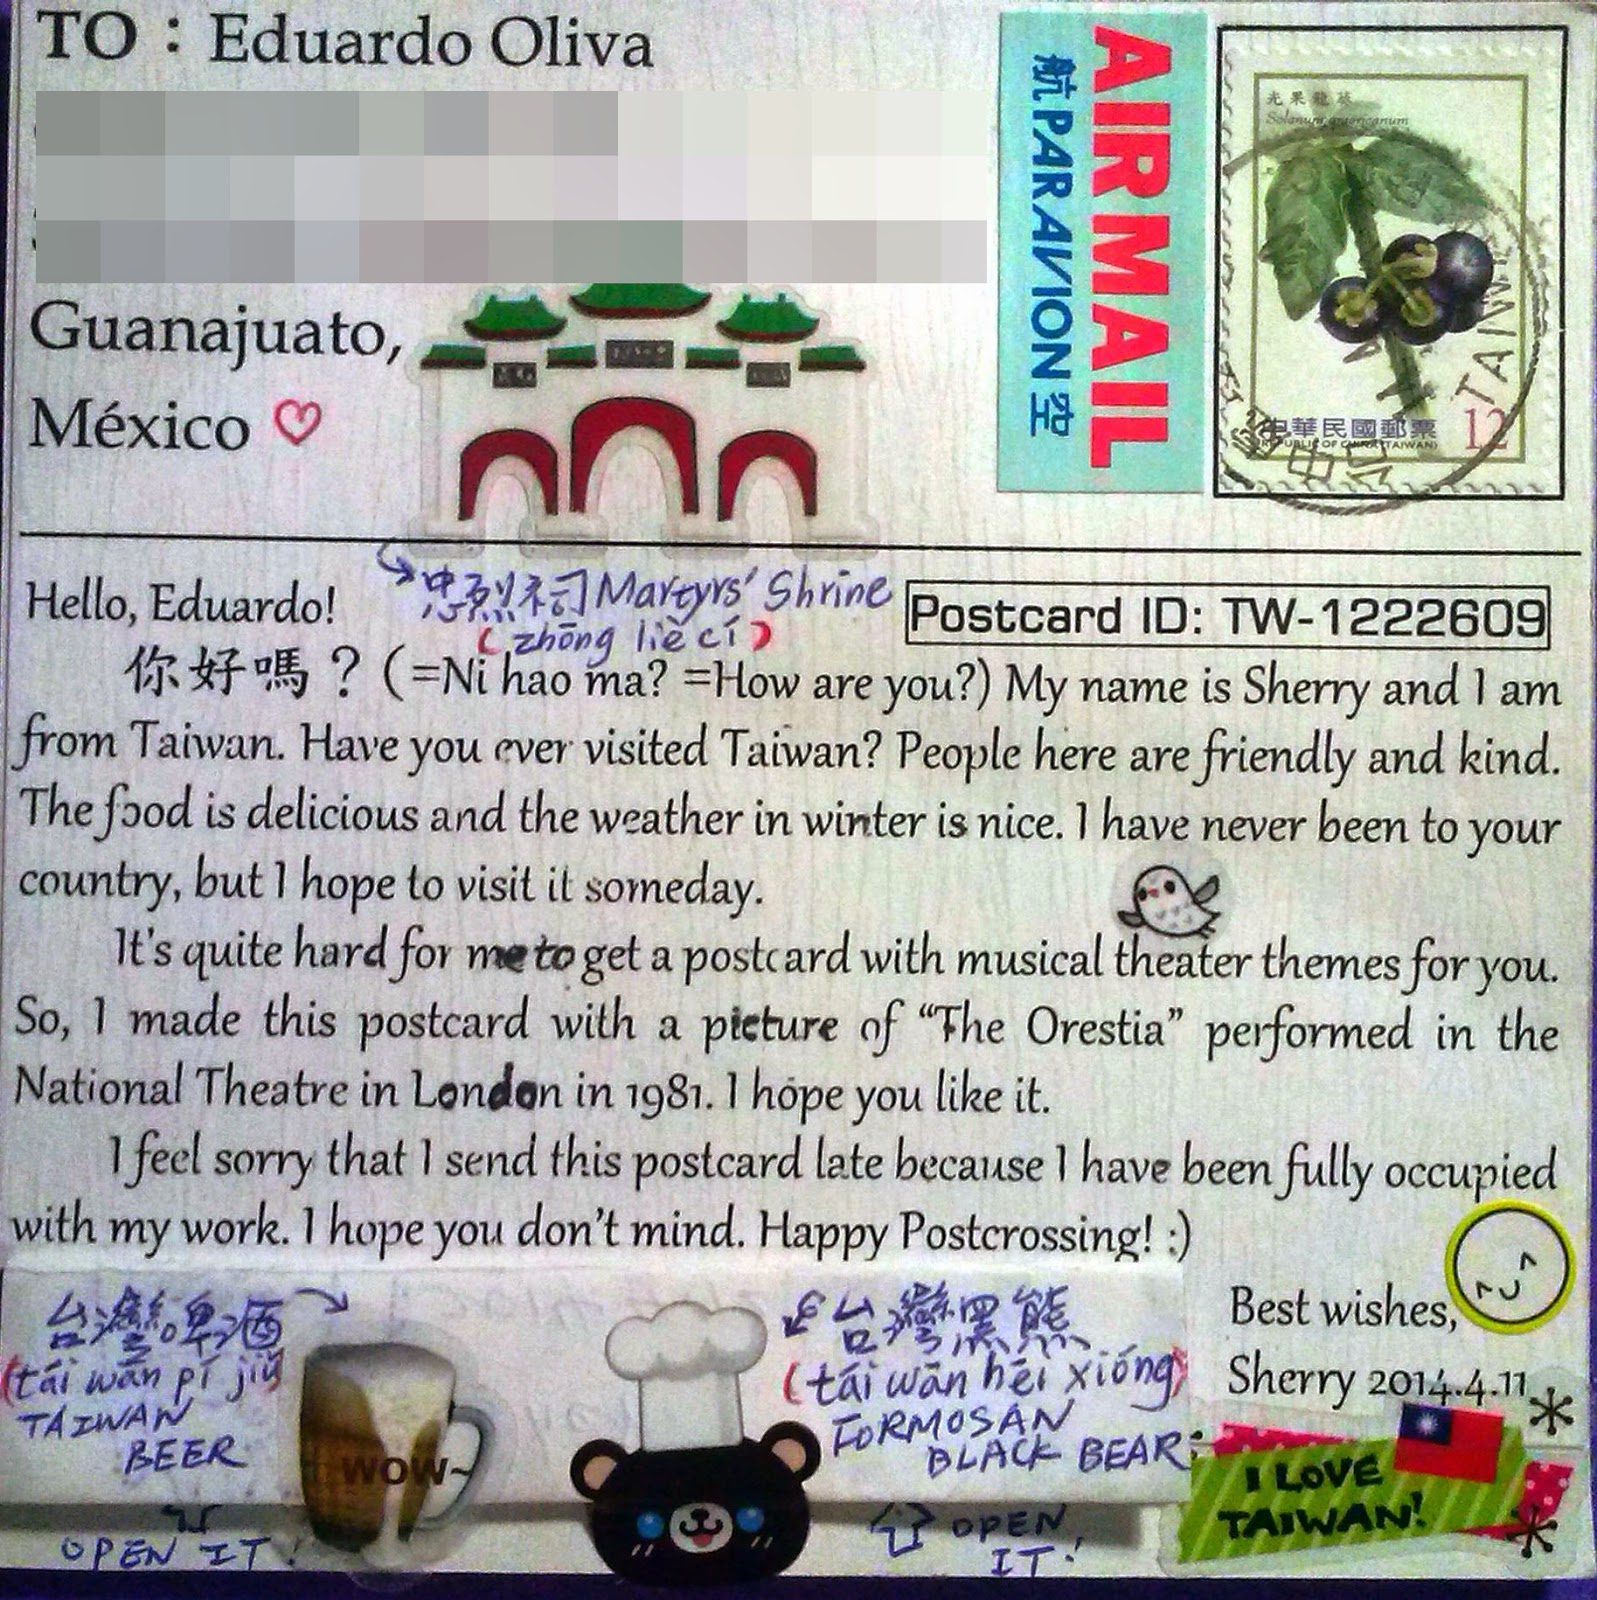 TO：Eduardo Oliva
Guanajuato,
México
AIR MAIL
航 PAR AVION 空
光果龍葵
Solanum americanum
中華民國郵票
REPUBLIC OF CHINA (TAIWAN)
12
TAIWAN
Hello, Eduardo!
忠烈祠 Martyrs' Shrine
(zhōng liè cí)
Postcard ID: TW-1222609
你好嗎？(=Ni hao ma? =How are you?) My name is Sherry and I am
from Taiwan. Have you ever visited Taiwan? People here are friendly and kind.
The food is delicious and the weather in winter is nice. I have never been to your
country, but I hope to visit it someday.
It's quite hard for me to get a postcard with musical theater themes for you.
So, I made this postcard with a picture of “The Orestia” performed in the
National Theatre in London in 1981. I hope you like it.
I feel sorry that I send this postcard late because I have been fully occupied
with my work. I hope you don't mind. Happy Postcrossing! :)
Best wishes,
Sherry 2014.4.11
台灣啤酒
(tái wān pí jiǔ)
TAIWAN
BEER
OPEN IT!
WOW~
台灣黑熊
(tái wān hēi xióng)
FORMOSAN
BLACK BEAR
OPEN
IT!
I LOVE
TAIWAN!